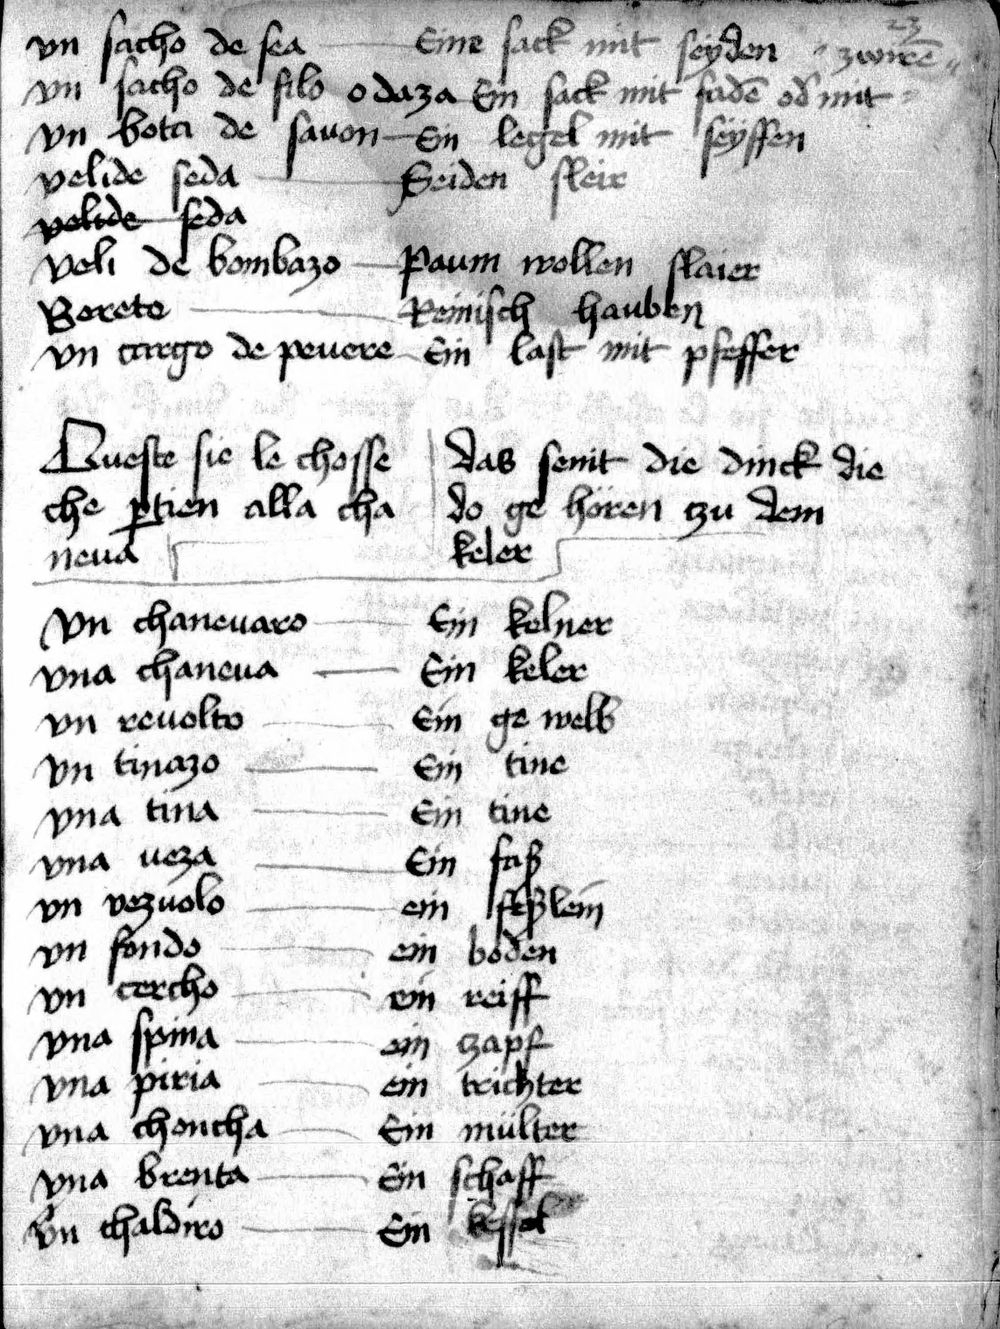 23
vn sacho de sea Eine sack mit seyden zwirē
vn sacho de filo o daza Ein sack mit fadē od mit
vn bota de savon Ein legel mit seÿffen
velide seda Seiden sleir
velide seda
veli de bombazo Paum wollen slaier
Berete Reinisch hauben
vn cargo de pevere Ein last mit pfeffer
Queste sie le chosse das senit die dinck die
che ꝑtien alla cha do ge hören tzu dem
neva keler
Vn chanevaro Ein kelner
vna chaneva Ein keler
vn revolto Ein ge welb
vn tinazo Ein tine
vna tina Ein tine
vna veza Ein faß
vn vezvolo ein feßlein
vn fondo ein boden
vn cercho ein reiff
vna spina ein tzapf
vna piria ein trichter
vna choncha Ein mülter
vna brenta Ein schaff
vn chaldiro Ein kessel